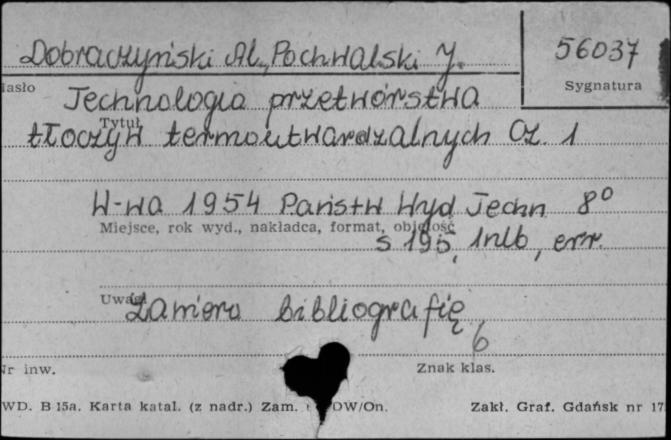 Dobraczyński Al., Pochwalski J.
56037
Hasło
Sygnatura
Technologia przetwórstwa
Tytuł
tłoczyw termoutwardzalnych Cz. 1
W-wa 1954 Państw Wyd Techn 8°
Miejsce, rok wyd., nakładca, format, objętość
s 195, 1nlb, err.
Uwagi
Zawiera bibliografię
6
Nr inw.
Znak klas.
WD. B 15a. Karta katal. (z nadr.) Zam. DW/On.
Zakł. Graf. Gdańsk nr 17